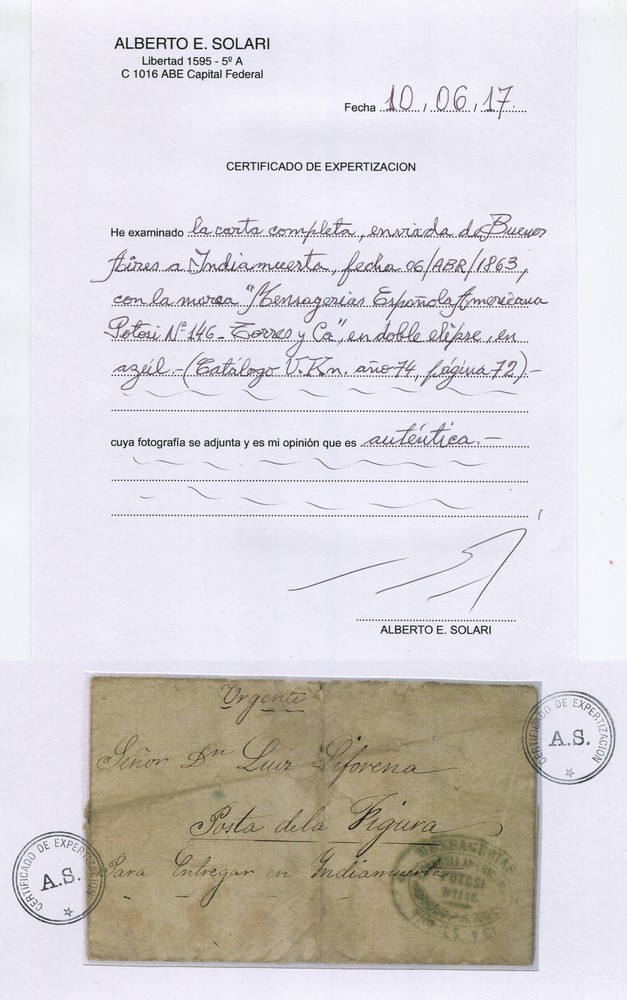 ALBERTO E. SOLARI
Libertad 1595 - 5º A
C 1016 ABE Capital Federal
Fecha 10.06.17.
CERTIFICADO DE EXPERTIZACION
He examinado la carta completa, enviada de Buenos
Aires a Indiamuerta, fecha 06/ABR/1863,
con la marca "Mensagerias Española Americana
Potosi Nº 146 - Torres y Ca", en doble elipse, en
azul - (Catálogo V.Kn. año 74, página 72) -
cuya fotografía se adjunta y es mi opinión que es auténtica. -
ALBERTO E. SOLARI
Urgente
Señor Dn Luis
Posta de la Figura
Para Entregar en Indiamuerta
MENSAGERIAS
POTOSI
Nº 146
CERTIFICADO DE EXPERTIZACION
A.S.
CERTIFICADO DE EXPERTIZACION
A.S.